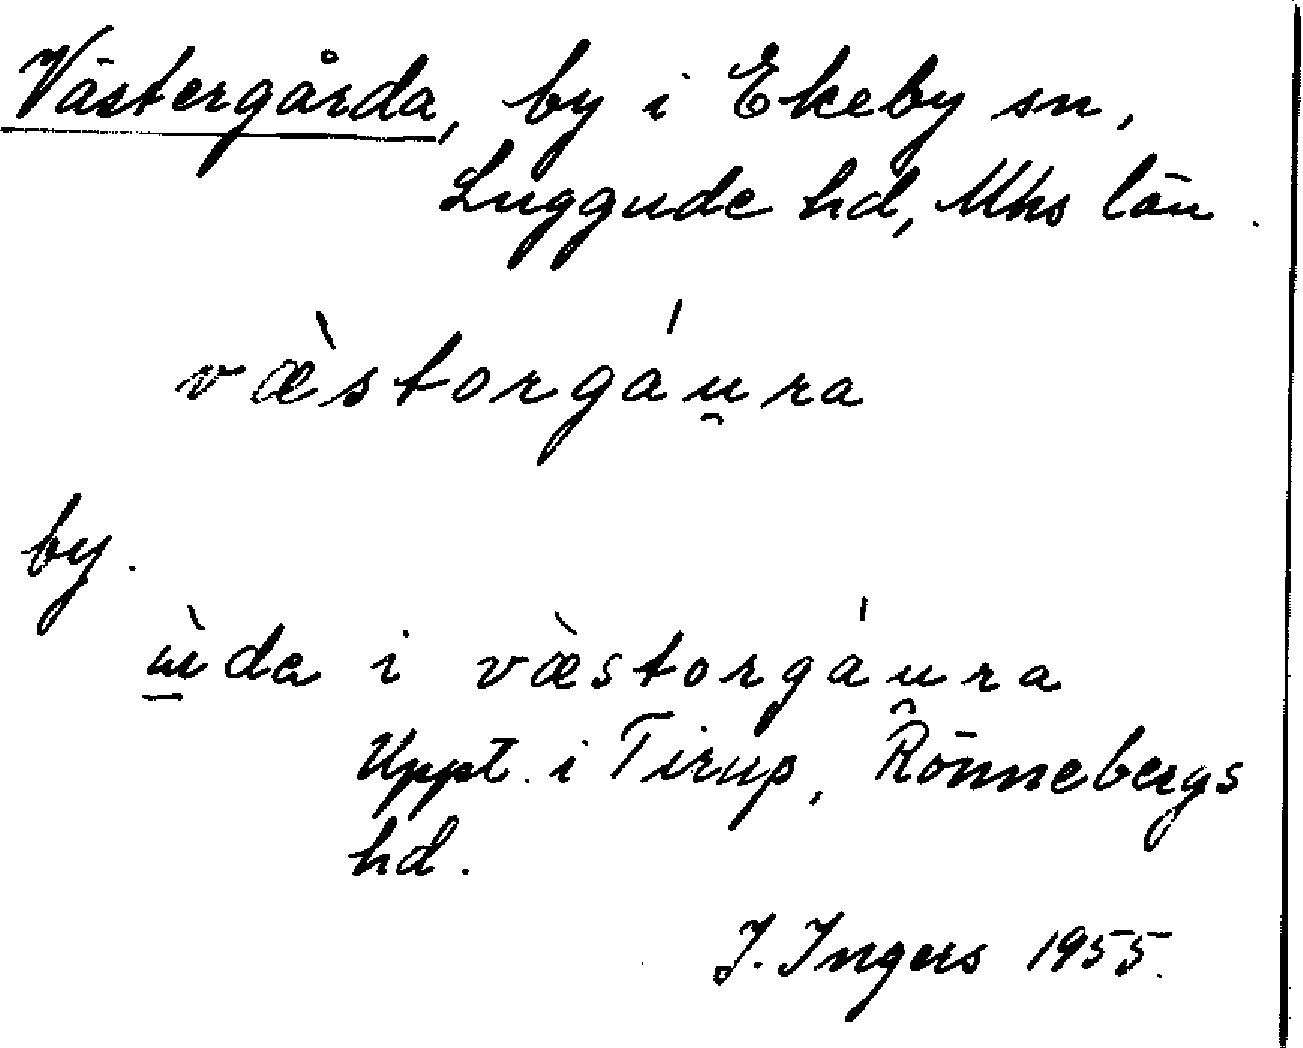 Västergårda, by i Ekeby sn,
Luggude hd, Mhs län.
væ̀storgáu̯ra
by.
ɯ̀da i væ̀storgáu̯ra
Uppt. i Tirup, Rönnebergs
hd.
I. Ingers 1955.